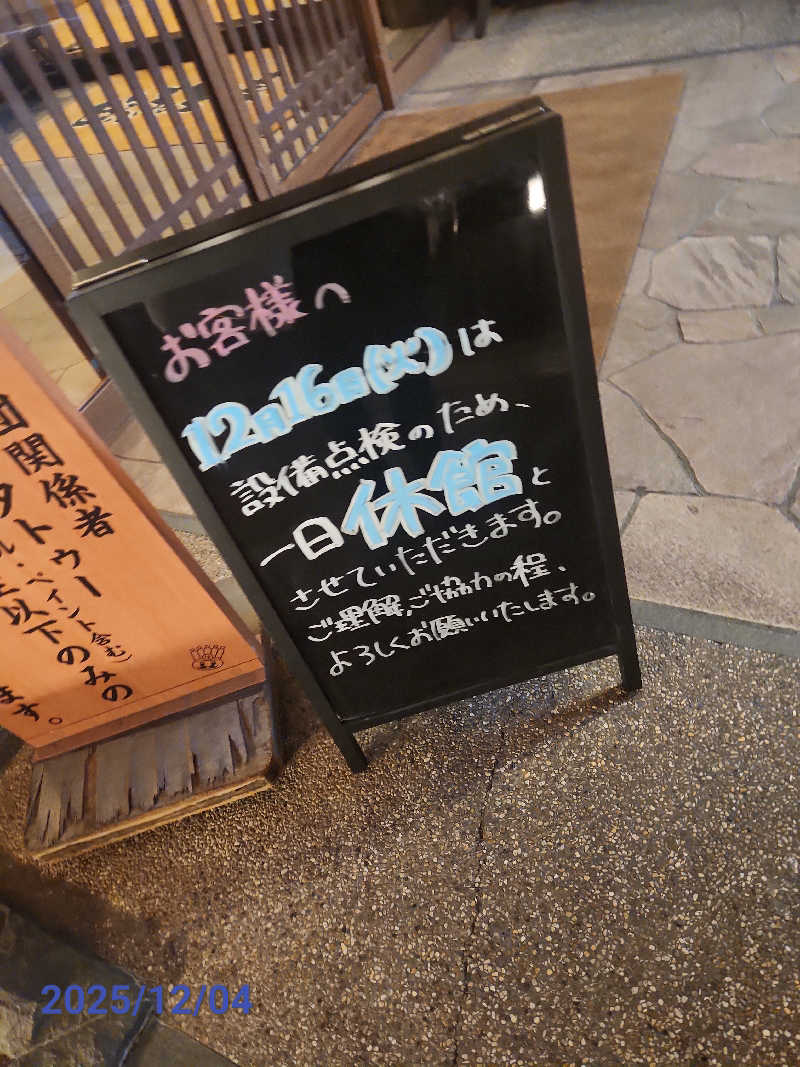 お客様へ
12月16日(火)は
設備点検のため、
一日休館と
させていただきます。
ご理解、ご協力の程、
よろしくお願いいたします。
団関係者
タトゥー
ペイント含む)
以下のみの
ます。
2025/12/04